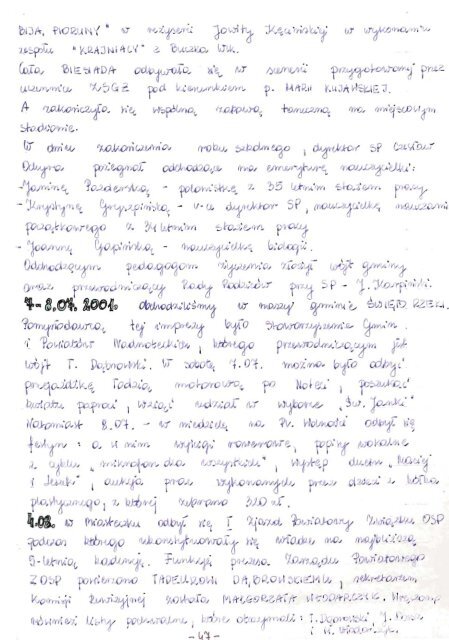 BIJĄ PIORUNY" w reżyserii Jowity Kęcińskiej w wykonaniu
zespołu "KRAJNIACY" z Buczka Wlk.
Cała BIESIADA odbywała się w scenerii przygotowanej przez
uczennice ZSGŻ pod kierunkiem p. MARII KUJAWSKIEJ.
A zakończyła się wspólną zabawą taneczną na miejscowym
stadionie.
W dniu zakończenia roku szkolnego, dyrektor SP Czesław
Odyja pożegnał odchodzące na emeryturę nauczycielki:
- Janinę Pazderską - polonistkę z 35 letnim stażem pracy
- Krystynę - v-ce dyrektor SP, nauczycielkę nauczania
początkowego z 34 letnim stażem pracy
- Joannę - nauczycielkę biologii.
Odchodzącym pedagogom życzenia złożył wójt gminy
oraz przewodniczący Rady Rodziców przy SP - J. Karpiński.
7-8.07.2001. obchodziliśmy w naszej gminie ŚWIĘTO RZEKI.
Pomysłodawcą tej imprezy było Stowarzyszenie Gmin
i Powiatów Nadnoteckich, którego przewodniczącym jest
wójt T. Dąbrowski. W sobotę 7.07. można było odbyć
przejażdżkę łodzią motorową po Noteci, poszukać
kwiatu paproci, wziąć udział w wyborze „Św. Janki"
Natomiast 8.07. - w niedzielę na Pl. Wolności odbył się
festyn: a w nim wyścigi rowerowe, popisy wokalne
z cyklu „mikrofon dla wszystkich", występ duetu „Maciej
i ", aukcja prac wykonanych przez dzieci z kółka
plastycznego, z której zebrano 320 zł.
4.08. w Miasteczku odbył się I Zjazd Powiatowy Związku OSP
podczas którego ukonstytuowały się władze na najbliższą
5-letnią kadencję. Funkcję prezesa Zarządu Powiatowego
ZOSP powierzono TADEUSZOWI DĄBROWSKIEMU, sekretarzem
Komisji Rewizyjnej została MAŁGORZATA WŁODARCZYK. Wręczono
również listy pochwalne, które otrzymali: T. Dąbrowski, J.
- 47 - Włodarczyk